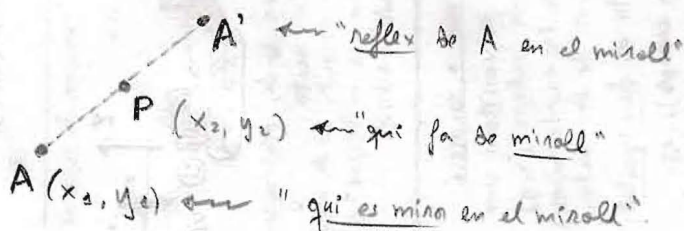 A' ← "reflex de A en el mirall"
P (x₂, y₂) ← "qui fa de mirall"
A (x₁, y₁) ← "qui es mira en el mirall"